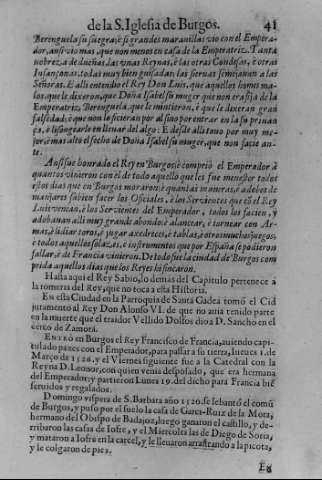 de la S. Iglesia de Burgos. 41
Berenguela su suegra; è si grandes marauillas vio con el Empera-
dor, ansi vio mas que non menos en casa de la Emperatriz. Tanta
nobreza de dueñas, las vnas Reynas, è las otras Condesas, è otras
Infançonas, todas muy bien guisadas: las sieruas semejauan a las
Señoras. E alli entendio el Rey Don Luis, que aquellos homes ma-
los, que le dixeron, que Doña Isabel su muger que non era fija de la
Emperatriz Berenguela, que le mintieron, è que le dixeran gran
falsedad: è que non lo ficieran por al sino por entrar en la su priuan
ça, è lisongearle en lleuar del algo: E desde alli touo por muy me-
jor, è mas alto el fecho de Doña Isabel su muger, que non facie an-
te.
Ansi fue honrado el Rey en Burgos: è compriò el Emperador à
quantos vinieron con el de todo aquello que les fue menester todos
estos dias que en Burgos moraron: è quantas maneras, è adebes de
manjares sabien facer los Oficiales, è los Seruientes que con el Rey
Luis venian, è los Seruientes del Emperador, todos los facien, y
adobauan alli muy grande abondo: è alançear, è tornear con Ar-
mas, è lidiar toros, è jugar axedreces, è tablas, è otros muchos juegos,
è todos aquellos solazes, è instrumentos que por España se podieron
fallar: è de Francia vinieron. De todo fue la ciudad de Burgos com
prida aquellos dias que los Reyes hi fincaron.
Hasta aqui el Rey Sabio, lo demas del Capitulo pertenece a
la romeria del Rey, que no toca a esta Historia.
En esta Ciudad en la Parroquia de Santa Gadea tomó el Cid
juramento al Rey Don Alonso VI. de que no auia tenido parte
en la muerte que el traidor Vellido Dolfos dio a D. Sancho en el
cerco de Zamora.
Entró en Burgos el Rey Francisco de Francia, auiendo capi-
tulado pazes con el Emperador, para passar a su tierra, jueues 1. de
Março de 1526. y el Viernes siguiente fue a la Catedral con la
Reyna D. Leonor, con quien venia desposado, que era hermana
del Emperador: y partieron Lunes 19. del dicho para Francia bie
seruidos y regalados.
Domingo vispera de S. Barbara año 1520. se lebantó el comũ
de Burgos, y puso por el suelo la casa de Garci-Ruiz de la Mota,
hermano del Obispo de Badajoz, luego ganaron el castillo, y de-
rribaron las casas de Iofre, y el Miercoles las de Diego de Soria,
y mataron a Iofre en la carcel, y le lleuaron arrastrando a la picota,
y le colgaron de pies.